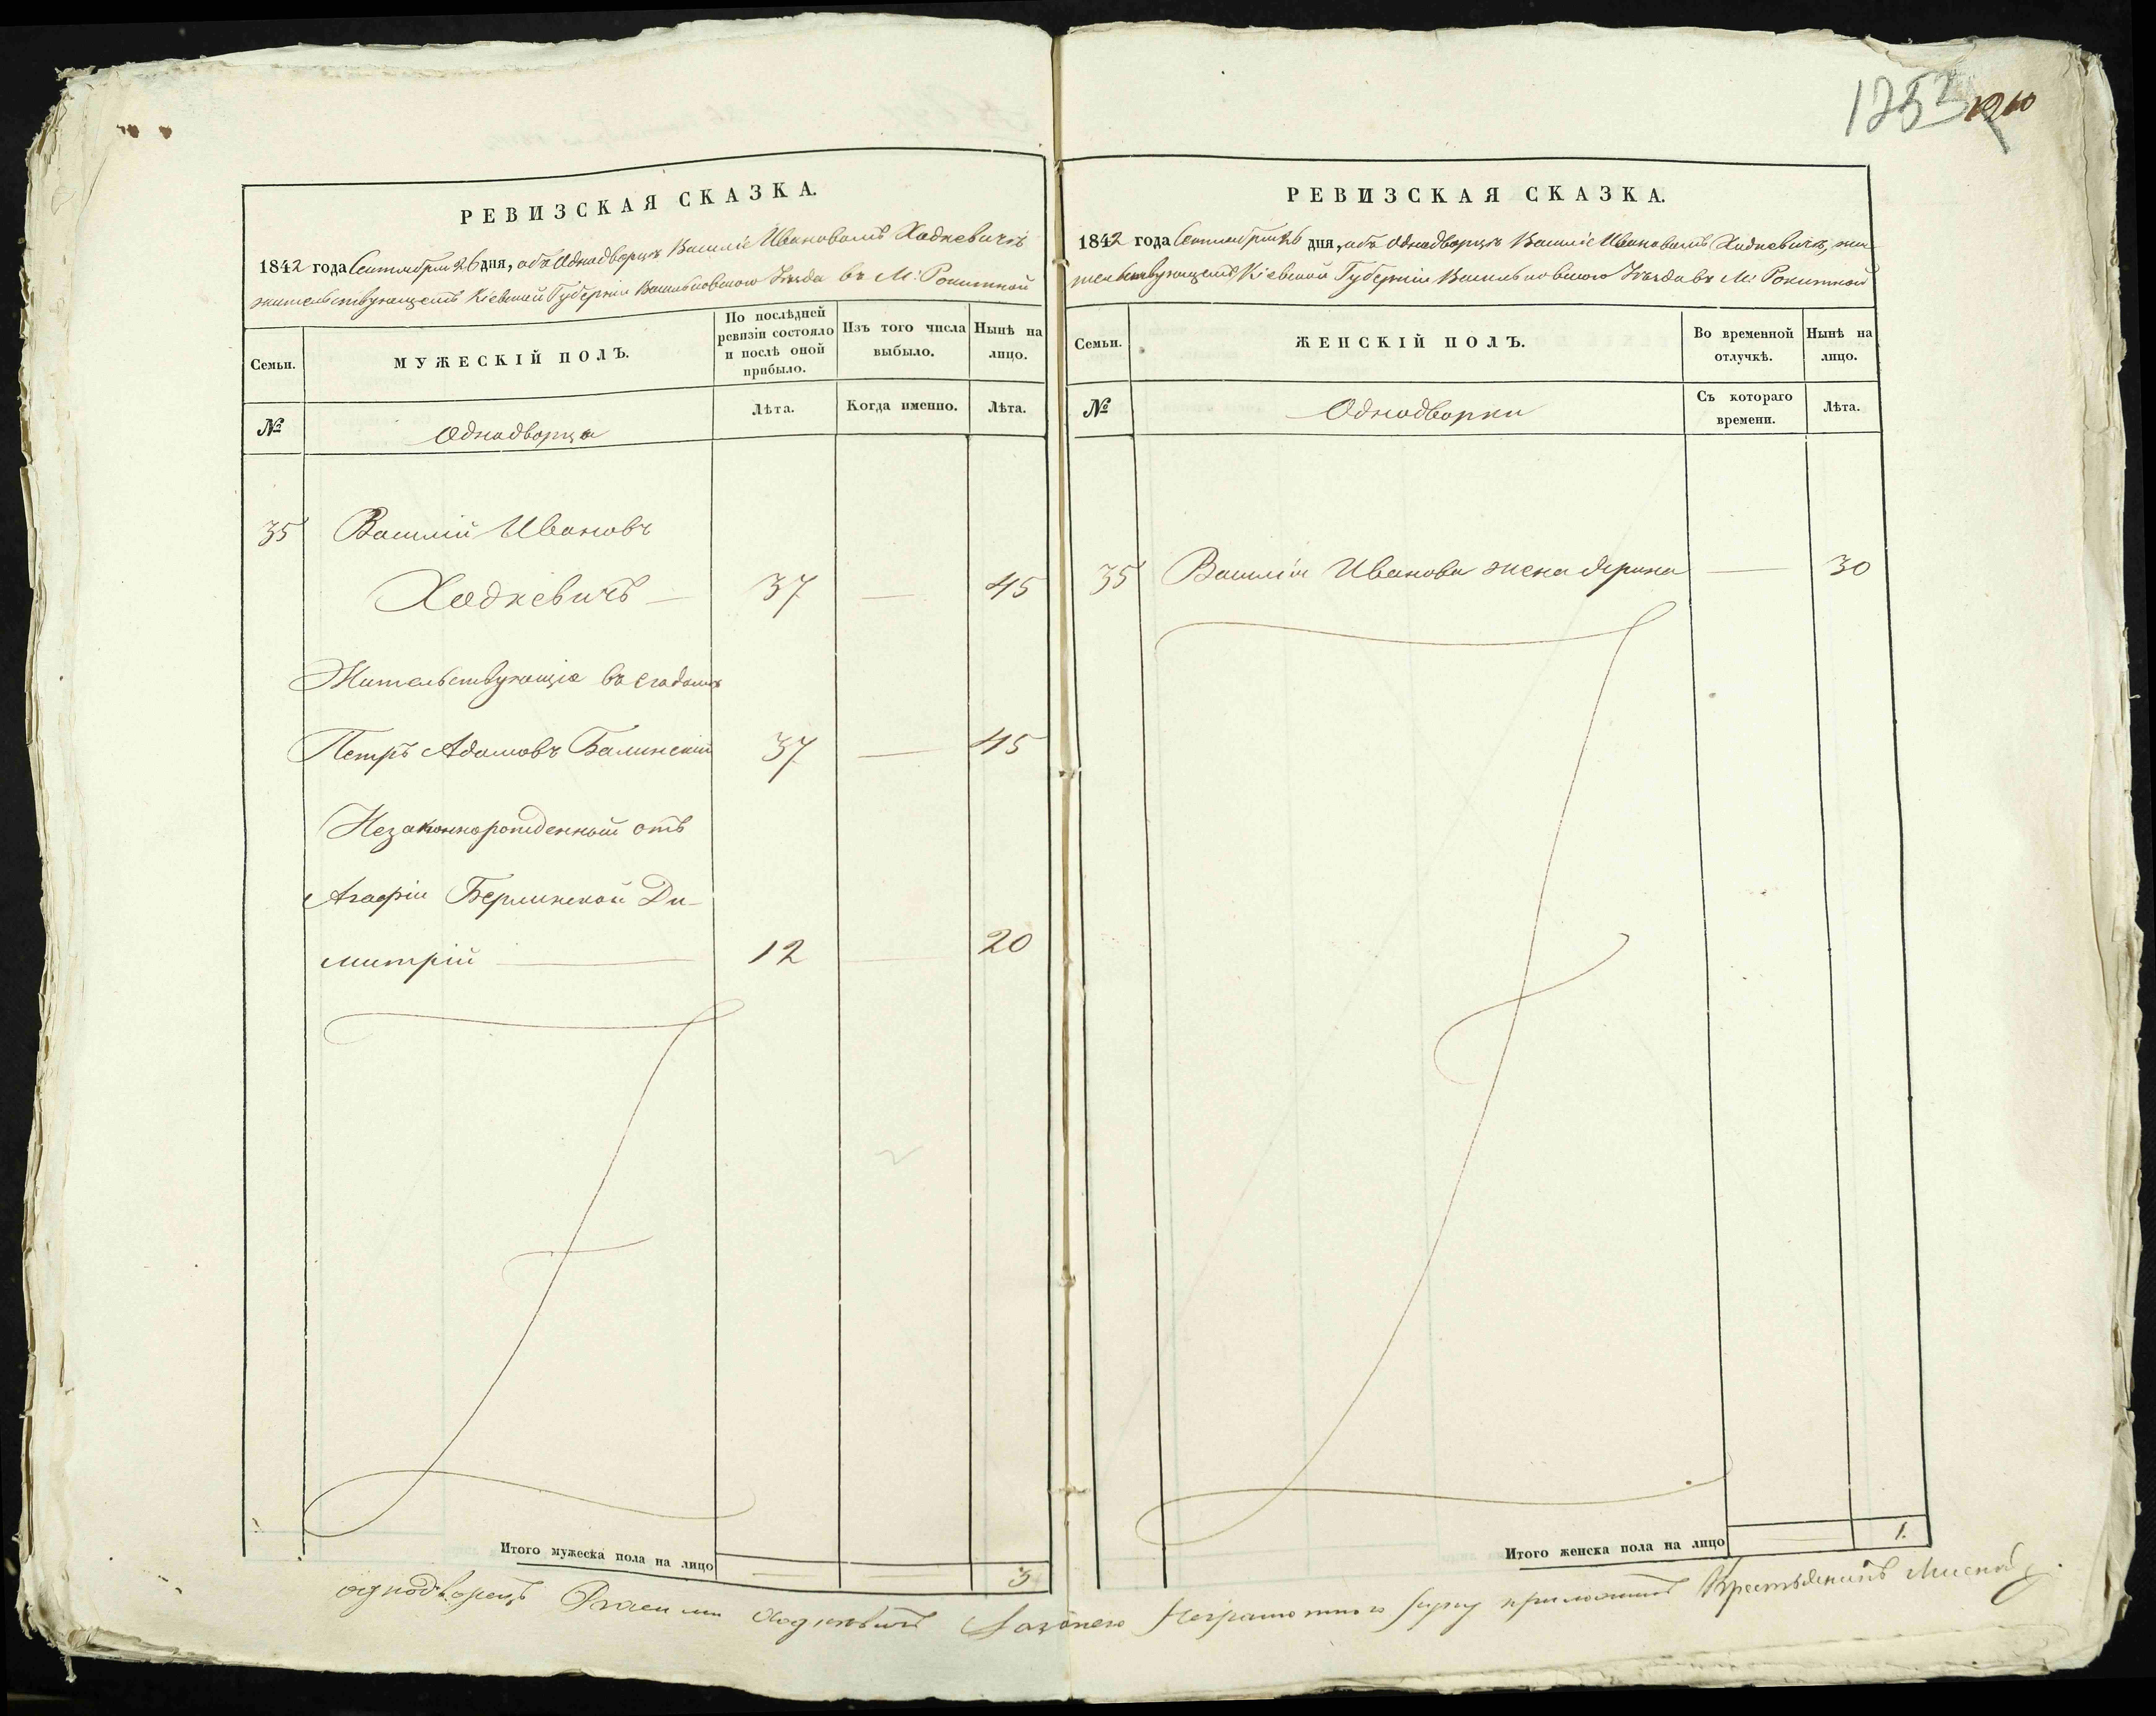 1910
РЕВИЗСКАЯ СКАЗКА.
1842 года Сентября 26 дня, объ Однодворцѣ Василіе Ивановомъ Ходкевичѣ
жительствующемъ Кіевской Губерніи Васильковского Уѣзда въ М: Рокитной
Семьи.
МУЖЕСКІЙ ПОЛЪ.
По послѣдней ревизіи состояло и послѣ оной прибыло.
Изъ того числа выбыло.
Нынѣ на лицо.
№
Однодворца
Лѣта.
Когда именно.
Лѣта.
35 Василій Ивановъ
Ходкевичъ — 37 — 45
Жительствующіе въ его домѣ
Петръ Адамовъ Балинскій 37 — 45
Незаконнорожденный отъ
Агафіи Берлинской Ди-
митрій — 12 — 20
Итого мужеска пола на лицо — 3
РЕВИЗСКАЯ СКАЗКА.
1842 года Сентября 26 дня, объ Однодворцѣ Василіе Ивановомъ Ходкевичѣ, жи-
тельствующемъ Кіевской Губерніи Васильковского Уѣзда въ М: Рокитной
Семьи.
ЖЕНСКІЙ ПОЛЪ.
Во временной отлучкѣ.
Нынѣ на лицо.
№
Однодворки
Съ котораго времени.
Лѣта.
35 Василія Иванова жена — 30
Итого женска пола на лицо — 1.
однодворецъ Ходкевичъ неграмотного руку приложилъ